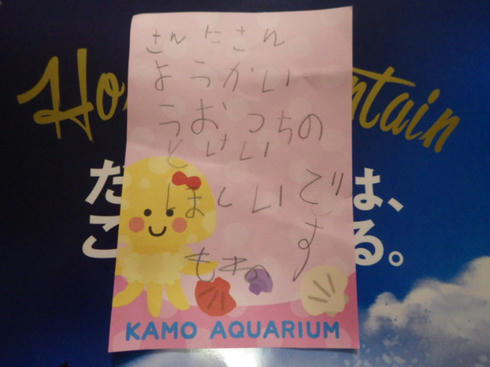 さんたさん
ようかい
うおっちの
とけい
ほしいです
もね
KAMO AQUARIUM
Ho
ntain
だ
は、
こ
る。